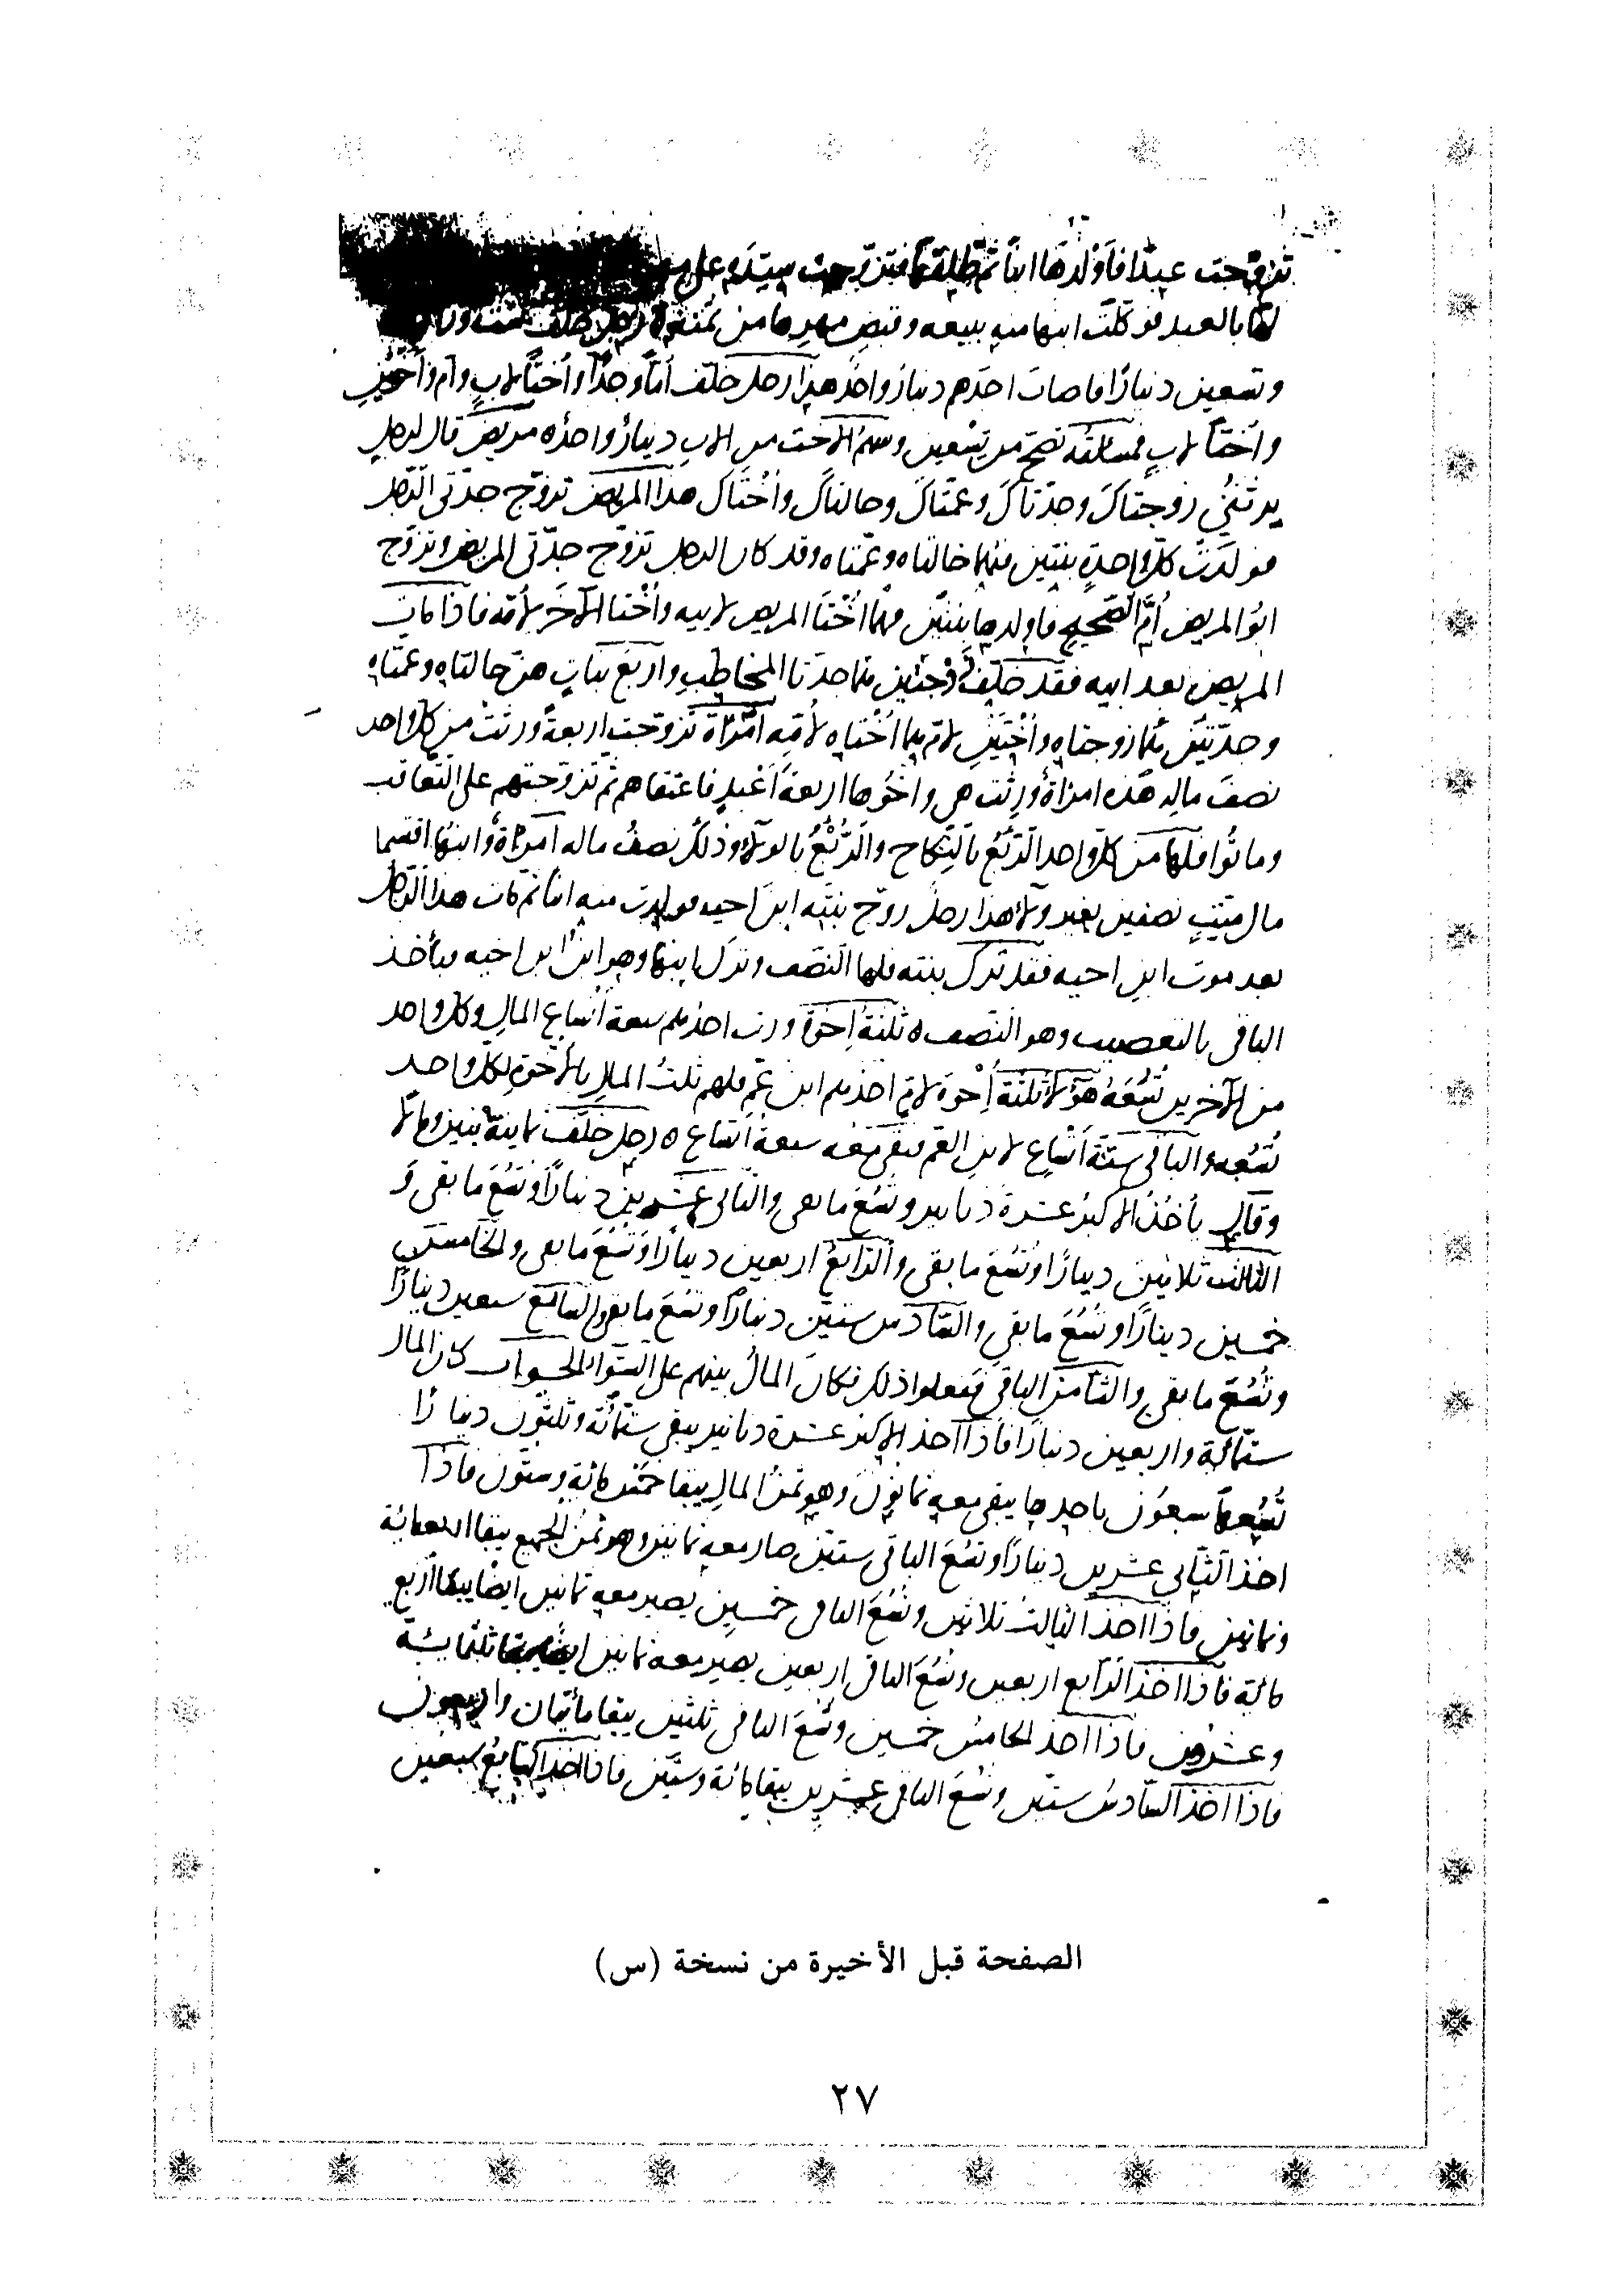 تزوجت عبدًا فأولدها ابنًا ثم طلقها فتزوجت بسيده على
لها بالعبد فوكلت ابنها منه ببيعه وقبض مهرها من ثمنه رجل خلف
وتسعين دينارًا فأصاب أحدهم دينارٌ واحدٌ هذا رجل خلف أمًا وجدًا وأختًا لأبٍ وأم وأخوين
وأختًا لأبٍ فمسألته تصح من تسعين وسهم الأخت من الأب دينارٌ واحدٌ ه مريض قال لرجلٍ
يرثني زوجتاك وجدتاك وعمتاك وخالتاك وأختاك هذا المريض تزوج جدتي الرجل
فولدت كل واحدةٍ بنتين فهما خالتاه وعمتاه وقد كان الرجل تزوج جدتي المريض وتزوج
أبو المريض أم الصحيح فأولدها بنتين فهما أختا المريض لأبيه وأختا الآخر لأمه فإذا مات
المريض بعد أبيه فقد خلف زوجتين هما جدتا المخاطب وأربع بناتٍ هن خالتاه وعمتاه
وجدتين هما زوجتاه وأختين لأبٍ هما أختاه لأمه امرأة تزوجت أربعةً ورثت من كل واحد
نصف ماله هذه امرأةٌ ورثت هي وأخوها أربعة أعبدٍ فأعتقاهم ثم تزوجتهم على التعاقب
وماتوا فلها من كل واحد الربع بالنكاح والربع بالولاء وذلك نصف ماله امرأةٌ وابنها اقتسما
مال ميتٍ نصفين بغير ولاء هذا رجلٌ زوج بنته ابن أخيه فولدت منه ابنًا ثم مات هذا الرجل
بعد موت ابن أخيه فقد ترك بنته فلها النصف وترك ابنها وهو ابن ابن أخيه فيأخذ
الباقي بالتعصيب وهو النصف ه ثلثة إخوة ورث أحدهم سبعة أتساع المال وكل واحد
من الآخرين تسعه هؤلاء ثلثة إخوة لأم أحدهم ابن عم فلهم ثلث المال بالأخوة لكل واحد
تسعه والباقي ستة أتساع لابن العم فبقي معه سبعة أتساع ه رجل خلف ثمانية بنين ومالًا
وقال يأخذ الأكبر عشرة دنانير وتسع ما بقي والثاني عشرين دينارًا وتسع ما بقي و
الثالث ثلاثين دينارًا وتسع ما بقي والرابع أربعين دينارًا وتسع ما بقي والخامس
خمسين دينارًا وتسع ما بقي والسادس ستين دينارًا وتسع ما بقي والسابع سبعين دينارًا
وتسع ما بقي والثامن الباقي ففعلوا ذلك فكان المال بينهم على السواء الجواب كان المال
ستمائة وأربعين دينارًا فإذا أخذ الأكبر عشرة دنانير يبقى ستمائة وثلثون دينارًا
تسعها سبعون يأخذها يبقى معه ثمانون وهو ثمن المال يبقا خمسمائة وستون فإذا
أخذ الثاني عشرين دينارًا وتسع الباقي ستين صار معه ثمانين وهو ثمن الجميع يبقا أربعمائة
وثمانين فإذا أخذ الثالث ثلاثين وتسع الباقي خمسين يصير معه ثمانين أيضًا يبقا أربع
مائة فإذا أخذ الرابع أربعين وتسع الباقي أربعين يصير معه ثمانين أيضًا يبقا ثلثمائة
وعشرون فإذا أخذ الخامس خمسين وتسع الباقي ثلثين يبقا مائتان وأربعون
فإذا أخذ السادس ستين وتسع الباقي عشرين يبقا مائة وستين فإذا أخذ السابع سبعين
الصفحة قبل الأخيرة من نسخة (س)
٢٧